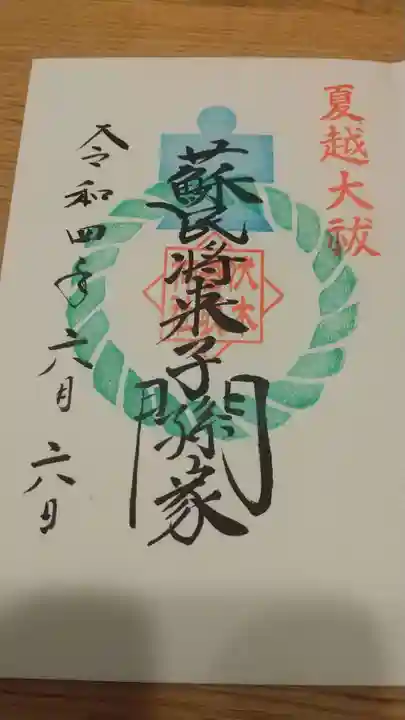 夏越大祓
蘇民将来子孫家門
令和四年六月六日